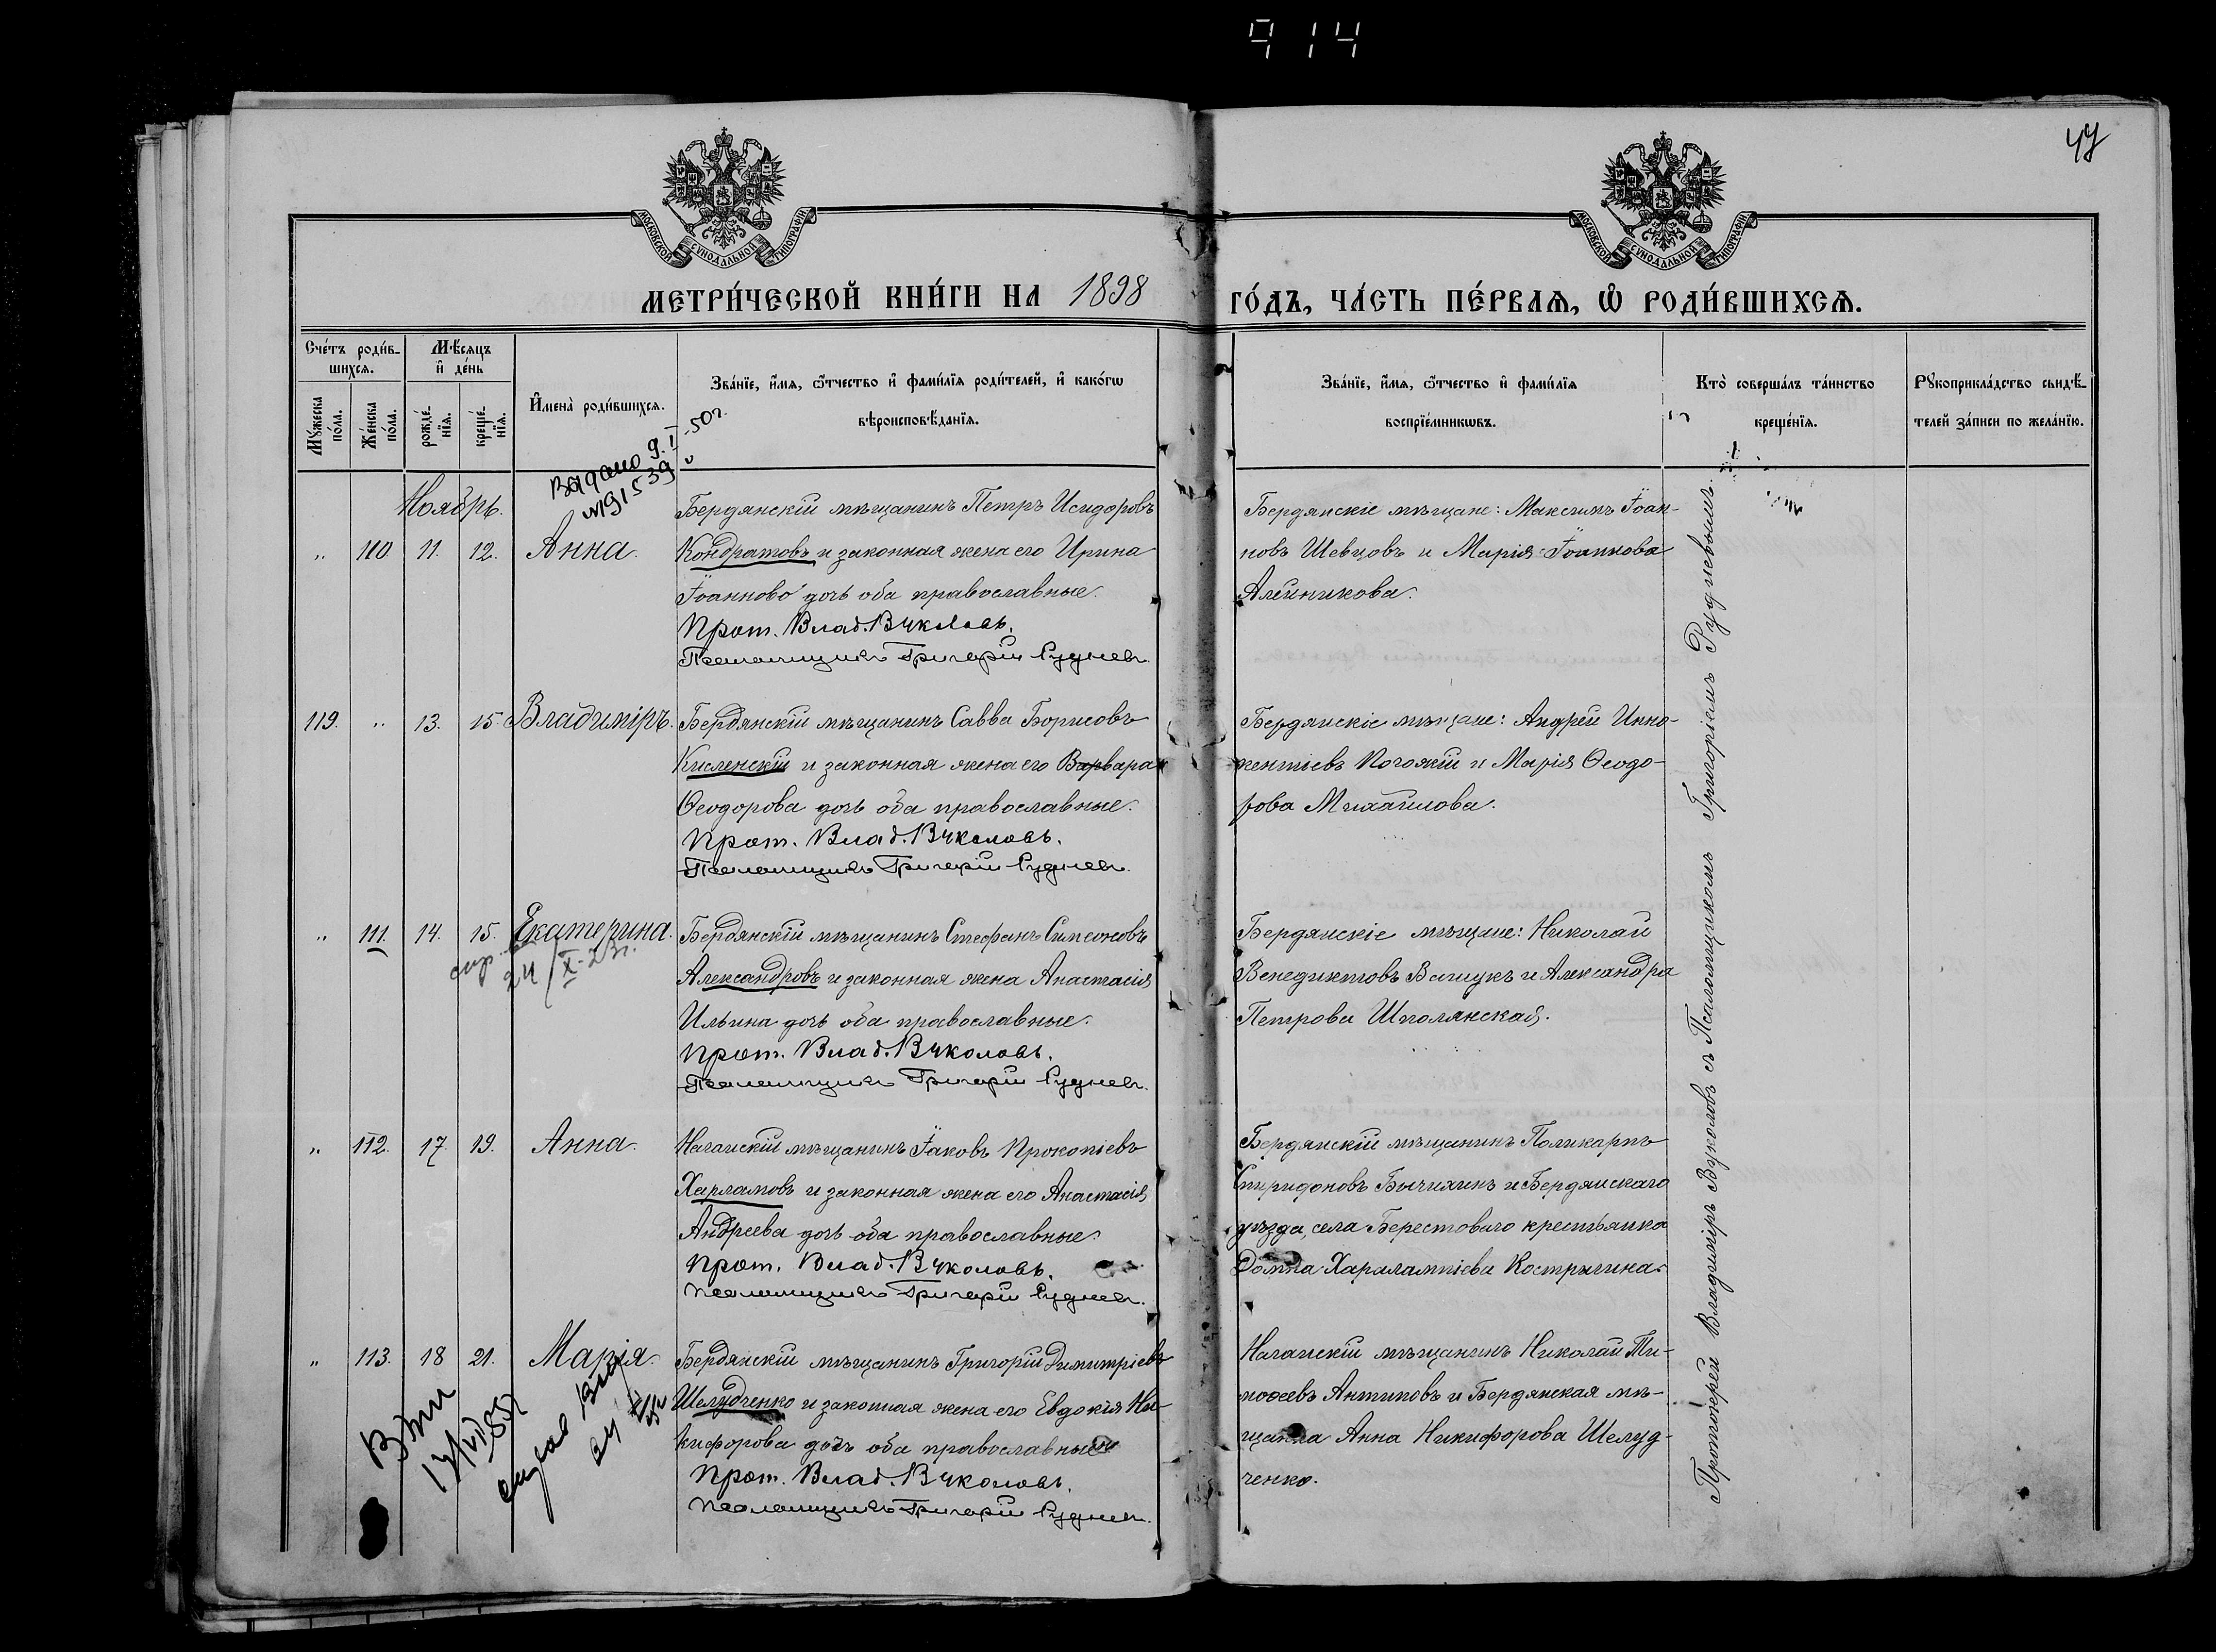 914
47
МОСКОВСКОЙ СѴНОДАЛЬНОЙ ТИПОГРАФІИ
МОСКОВСКОЙ СѴНОДАЛЬНОЙ ТИПОГРАФІИ
МЕТРИ́ЧЕСКОЙ КНИ́ГИ НА 1898 ГО́ДЪ, ЧА́СТЬ ПЕ́РВАѦ, Ѡ҆ РОДИ́ВШИХСѦ.
Сче́тъ роди́в-
шихсѧ.
Му́жеска по́ла.
Же́нска по́ла.
Мѣ́сѧцъ
и҆ де́нь
рожде́-
нїѧ.
креще́-
нїѧ.
И҆мена̀ роди́вшихсѧ.
Зва́нїе, и҆́мѧ, ѻ҆́тчество и҆ фами́лїѧ роди́телей, и҆ како́гѡ
вѣроисповѣ́данїѧ.
Зва́нїе, и҆́мѧ, ѻ҆́тчество и҆ фами́лїѧ
воспрїе́мникѡвъ.
Кто̀ соверша́лъ та́инство
креще́нїѧ.
Рꙋкоприкла́дство свидѣ́-
телей за́писи по жела́нїю.
Выдано 9.I-50г.
№91539
Ноябрь.
„ 110 11. 12. Анна.
Бердянскій мѣщанинъ Петръ Исидоровъ
Кондратовъ и законная жена его Ирина
Іоаннова дочь оба православные.
Прот. Влад. Вуколовъ.
Псаломщикъ Григорій Рудневъ.
Бердянскіе мѣщане: Максимъ Іоан-
новъ Шевцовъ и Марія Іоаннова
Алейникова.
119. „ 13. 15. Владиміръ.
Бердянскій мѣщанинъ Савва Борисовъ
Кисленскій и законная жена его Варвара
Ѳеодорова дочь оба православные.
Прот. Влад. Вуколовъ.
Псаломщикъ Григорій Рудневъ.
Бердянскіе мѣщане: Андрей Инно-
кентіевъ Когожій и Марія Ѳеодо-
рова Михайлова.
„ 111. 14. 15. Екатерина.
24/X-23г.
Бердянскій мѣщанинъ Стефанъ Симеоновъ
Александровъ и законная жена Анастасія
Ильина дочь оба православные.
Прот. Влад. Вуколовъ.
Псаломщикъ Григорій Рудневъ.
Бердянскіе мѣщане: Николай
Венедиктовъ и Александра
Петрова Шполянская.
„ 112. 17. 19. Анна.
Ногайскій мѣщанинъ Іаковъ Прокопіевъ
Харламовъ и законная жена его Анастасія
Андреева дочь оба православные.
Прот. Влад. Вуколовъ.
Псаломщикъ Григорій Рудневъ.
Бердянскій мѣщанинъ Поликарпъ
Спиридоновъ Бычихинъ и Бердянскаго
уѣзда, села Берестоваго крестьянка
Домна Харалампіева Кострыгина.
„ 113. 18 21. Марія.
Бердянскій мѣщанинъ Григорій Димитріевъ
Шелудченко и законная жена его Евдокія Ни-
кифорова дочь оба православные
Прот. Влад. Вуколовъ.
Псаломщикъ Григорій Рудневъ.
Ногайскій мѣщанинъ Николай Ти-
моѳеевъ Антиповъ и Бердянская мѣ-
щанка Анна Никифорова Шелуд-
ченко.
Протоіерей Владиміръ Вуколовъ съ Псаломщикомъ Григоріемъ Рудневымъ.